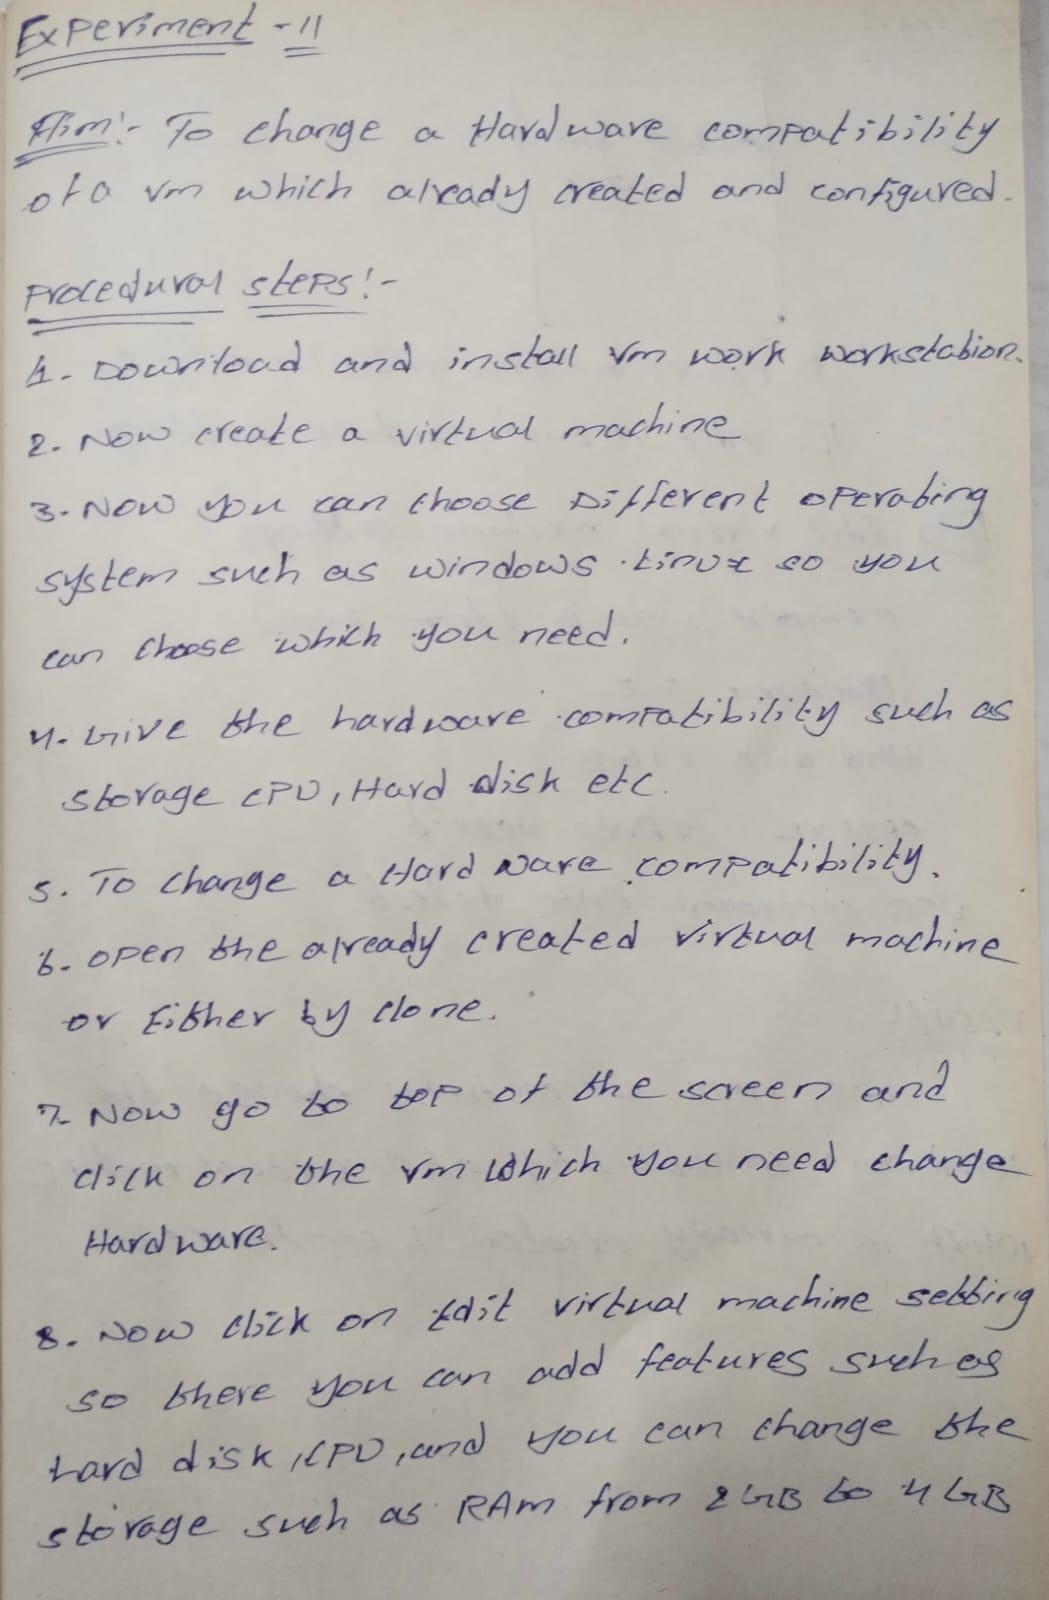 Experiment - 11
Aim:- To change a Hardware compatibility
of a vm which already created and configured.
Procedural steps:-
1. Download and install vm work workstation.
2. Now create a virtual machine
3. Now you can choose Different operating
system such as windows. Linux so you
can choose which you need.
4. Give the hardware compatibility such as
storage CPU, Hard disk etc.
5. To change a Hard ware compatibility.
6. open the already created virtual machine
or Either by clone.
7. Now go to top of the screen and
click on the vm which you need change
Hardware.
8. Now click on Edit virtual machine setting
so there you can add features such as
hard disk, CPU, and you can change the
storage such as RAM from 2GB to 4GB